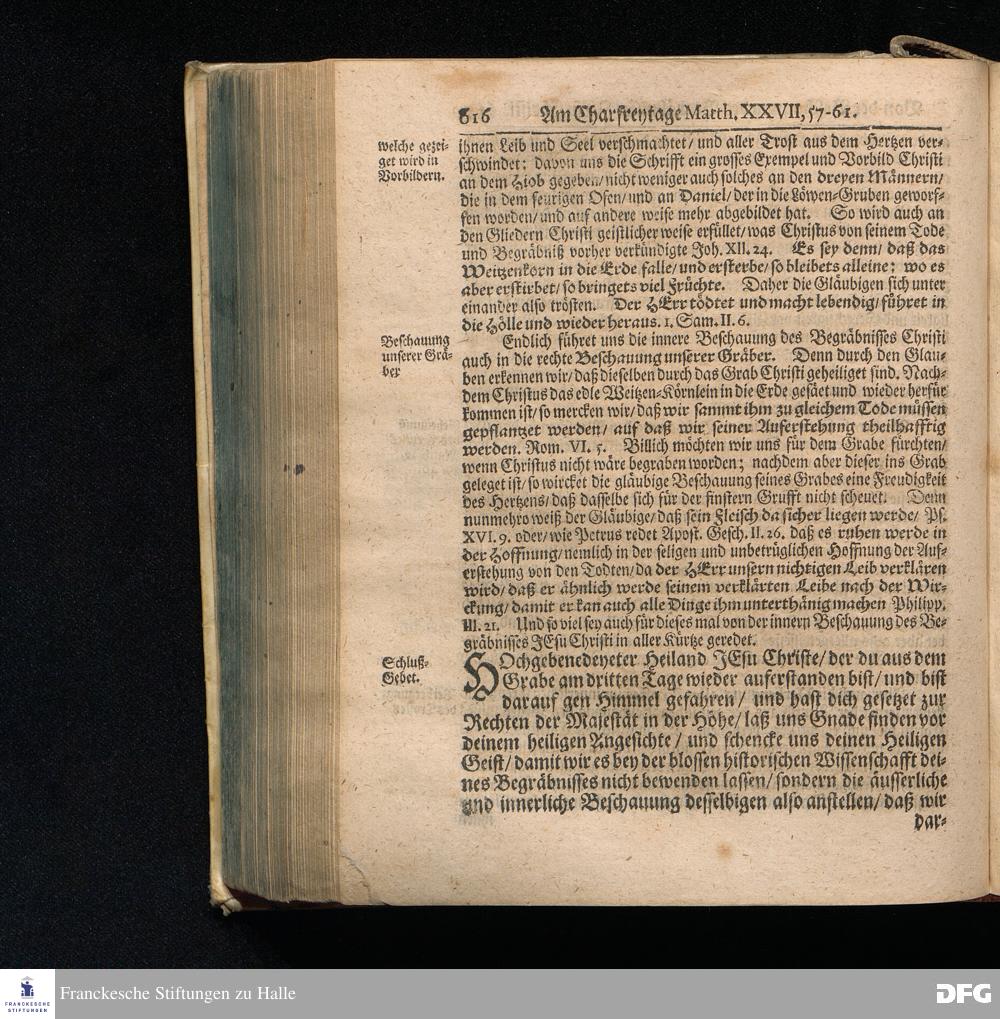 816 Am Charfreytage Matth. XXVII, 57-61.
welche gezei-
get wird in
Vorbildern.
ihnen Leib und Seel verschmachtet/ und aller Trost aus dem Hertzen ver-
schwindet: davon uns die Schrifft ein grosses Exempel und Vorbild Christi
an dem Hiob gegeben/ nicht weniger auch solches an den dreyen Männern/
die in dem feurigen Ofen/ und an Daniel/ der in die Löwen-Gruben geworf-
fen worden/ und auf andere weise mehr abgebildet hat. So wird auch an
den Gliedern Christi geistlicher weise erfüllet/ was Christus von seinem Tode
und Begräbniß vorher verkündigte Joh. XII. 24. Es sey denn/ daß das
Weitzenkorn in die Erde falle/ und ersterbe/ so bleibets alleine; wo es
aber erstirbet/ so bringets viel Früchte. Daher die Gläubigen sich unter
einander also trösten. Der HErr tödtet und macht lebendig/ führet in
die Hölle und wieder heraus. 1. Sam. II. 6.
Beschauung
unserer Grä-
ber
Endlich führet uns die innere Beschauung des Begräbnisses Christi
auch in die rechte Beschauung unserer Gräber. Denn durch den Glau-
ben erkennen wir/ daß dieselben durch das Grab Christi geheiliget sind. Nach-
dem Christus das edle Weitzen-Körnlein in die Erde gesäet und wieder herfür
kommen ist/ so mercken wir/ daß wir sammt ihm zu gleichem Tode müssen
gepflantzet werden/ auf daß wir seiner Auferstehung theilhafftig
werden. Rom. VI. 5. Billich möchten wir uns für dem Grabe fürchten/
wenn Christus nicht wäre begraben worden; nachdem aber dieser ins Grab
geleget ist/ so wircket die gläubige Beschauung seines Grabes eine Freudigkeit
des Hertzens/ daß dasselbe sich für der finstern Grufft nicht scheuet. Denn
nunmehro weiß der Gläubige/ daß sein Fleisch da sicher liegen werde/ Ps.
XVI. 9. oder/ wie Petrus redet Apost. Gesch. II. 26. daß es ruhen werde in
der Hoffnung/ nemlich in der seligen und unbetrüglichen Hoffnung der Auf-
erstehung von den Todten/ da der HErr unsern nichtigen Leib verklären
wird/ daß er ähnlich werde seinem verklärten Leibe nach der Wir-
ckung/ damit er kan auch alle Dinge ihm unterthänig machen Philipp.
III. 21. Und so viel sey auch für dieses mal von der innern Beschauung des Be-
gräbnisses JEsu Christi in aller Kürtze geredet.
Schluß-
Gebet.
HOchgebenedeyeter Heiland JEsu Christe/ der du aus dem
Grabe am dritten Tage wieder auferstanden bist/ und bist
darauf gen Himmel gefahren/ und hast dich gesetzet zur
Rechten der Majestät in der Höhe/ laß uns Gnade finden vor
deinem heiligen Angesichte/ und schencke uns deinen Heiligen
Geist/ damit wir es bey der blossen historischen Wissenschafft dei-
nes Begräbnisses nicht bewenden lassen/ sondern die äusserliche
und innerliche Beschauung desselbigen also anstellen/ daß wir
dar-
FRANCKESCHE
STIFTUNGEN
Franckesche Stiftungen zu Halle
DFG